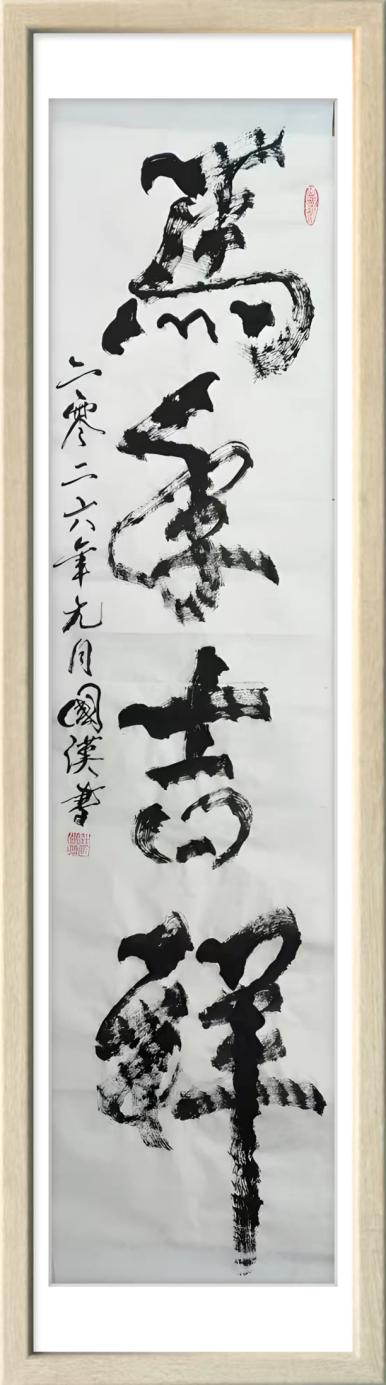 馬年吉祥
二零二六年元月國漢書